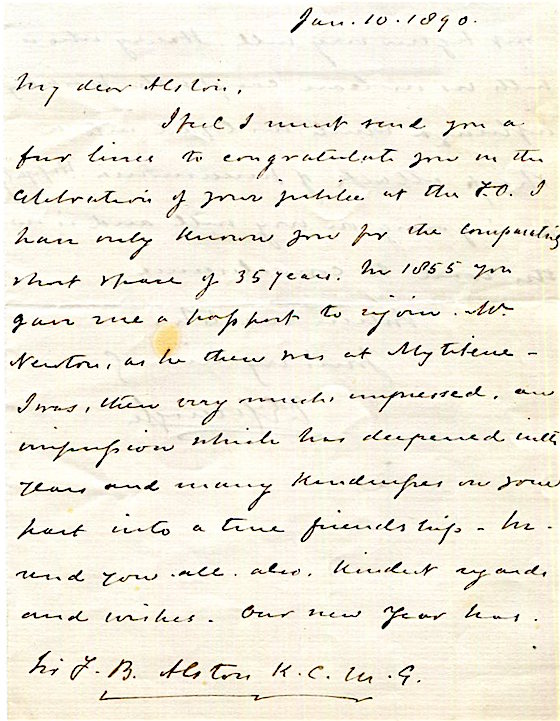 Jan. 10. 1890.
My dear Alston,
I feel I must send you a
few lines to congratulate you on the
celebration of your jubilee at the F.O. I
have only known you for the comparatively
short space of 35 years. In 1855 you
gave me a passport to rejoin Mr
Newton, as he then was at Mytilene -
I was, then very much impressed, an
impression which has deepened with
years and many kindnesses on your
part into a true friendship -
send you all also, kindest regards
and wishes. Our new Year has.
Sir F. B. Alston K. C. M. G.